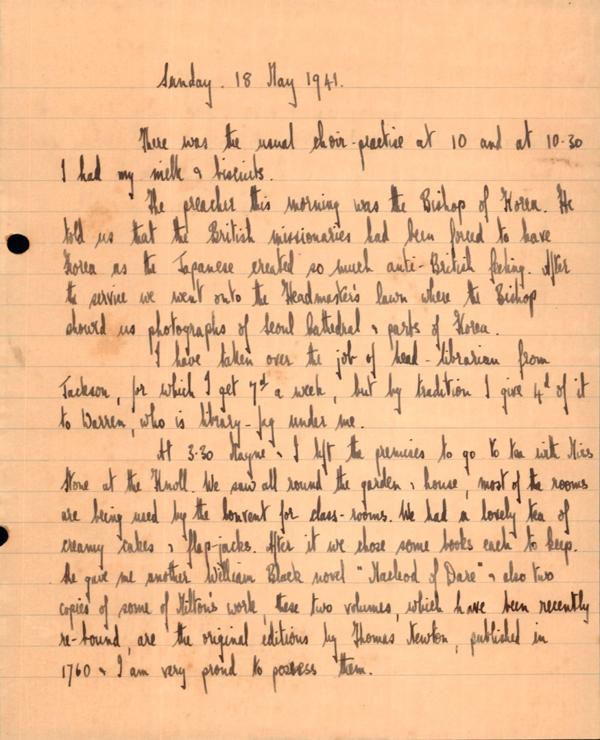 Sunday. 18 May 1941.
There was the usual choir-practise at 10 and at 10-30
I had my milk & biscuits.
The preacher this morning was the Bishop of Korea. He
told us that the British missionaries had been forced to have
Korea as the Japanese created so much anti-British feeling. After
the service we went onto the Headmaster's lawn where the Bishop
showed us photographs of Seoul Cathedral & parts of Korea.
I have taken over the job of head-librarian from
Jackson, for which I get 7d a week, but by tradition I give 4d of it
to Warren, who is library-fag under me.
At 3.30 Mayne & I left the premises to go to tea with Miss
Stone at the Knoll. We saw all round the garden & house, most of the rooms
are being used by the Convent for class-rooms. We had a lovely tea of
creamy cakes & flap-jacks. After it we chose some books each to keep.
She gave me another William Black novel "Macleod of Dare" & also two
copies of some of Milton's work, these two volumes, which have been recently
re-bound, are the original editions by Thomas Newton, published in
1760 & I am very proud to possess them.